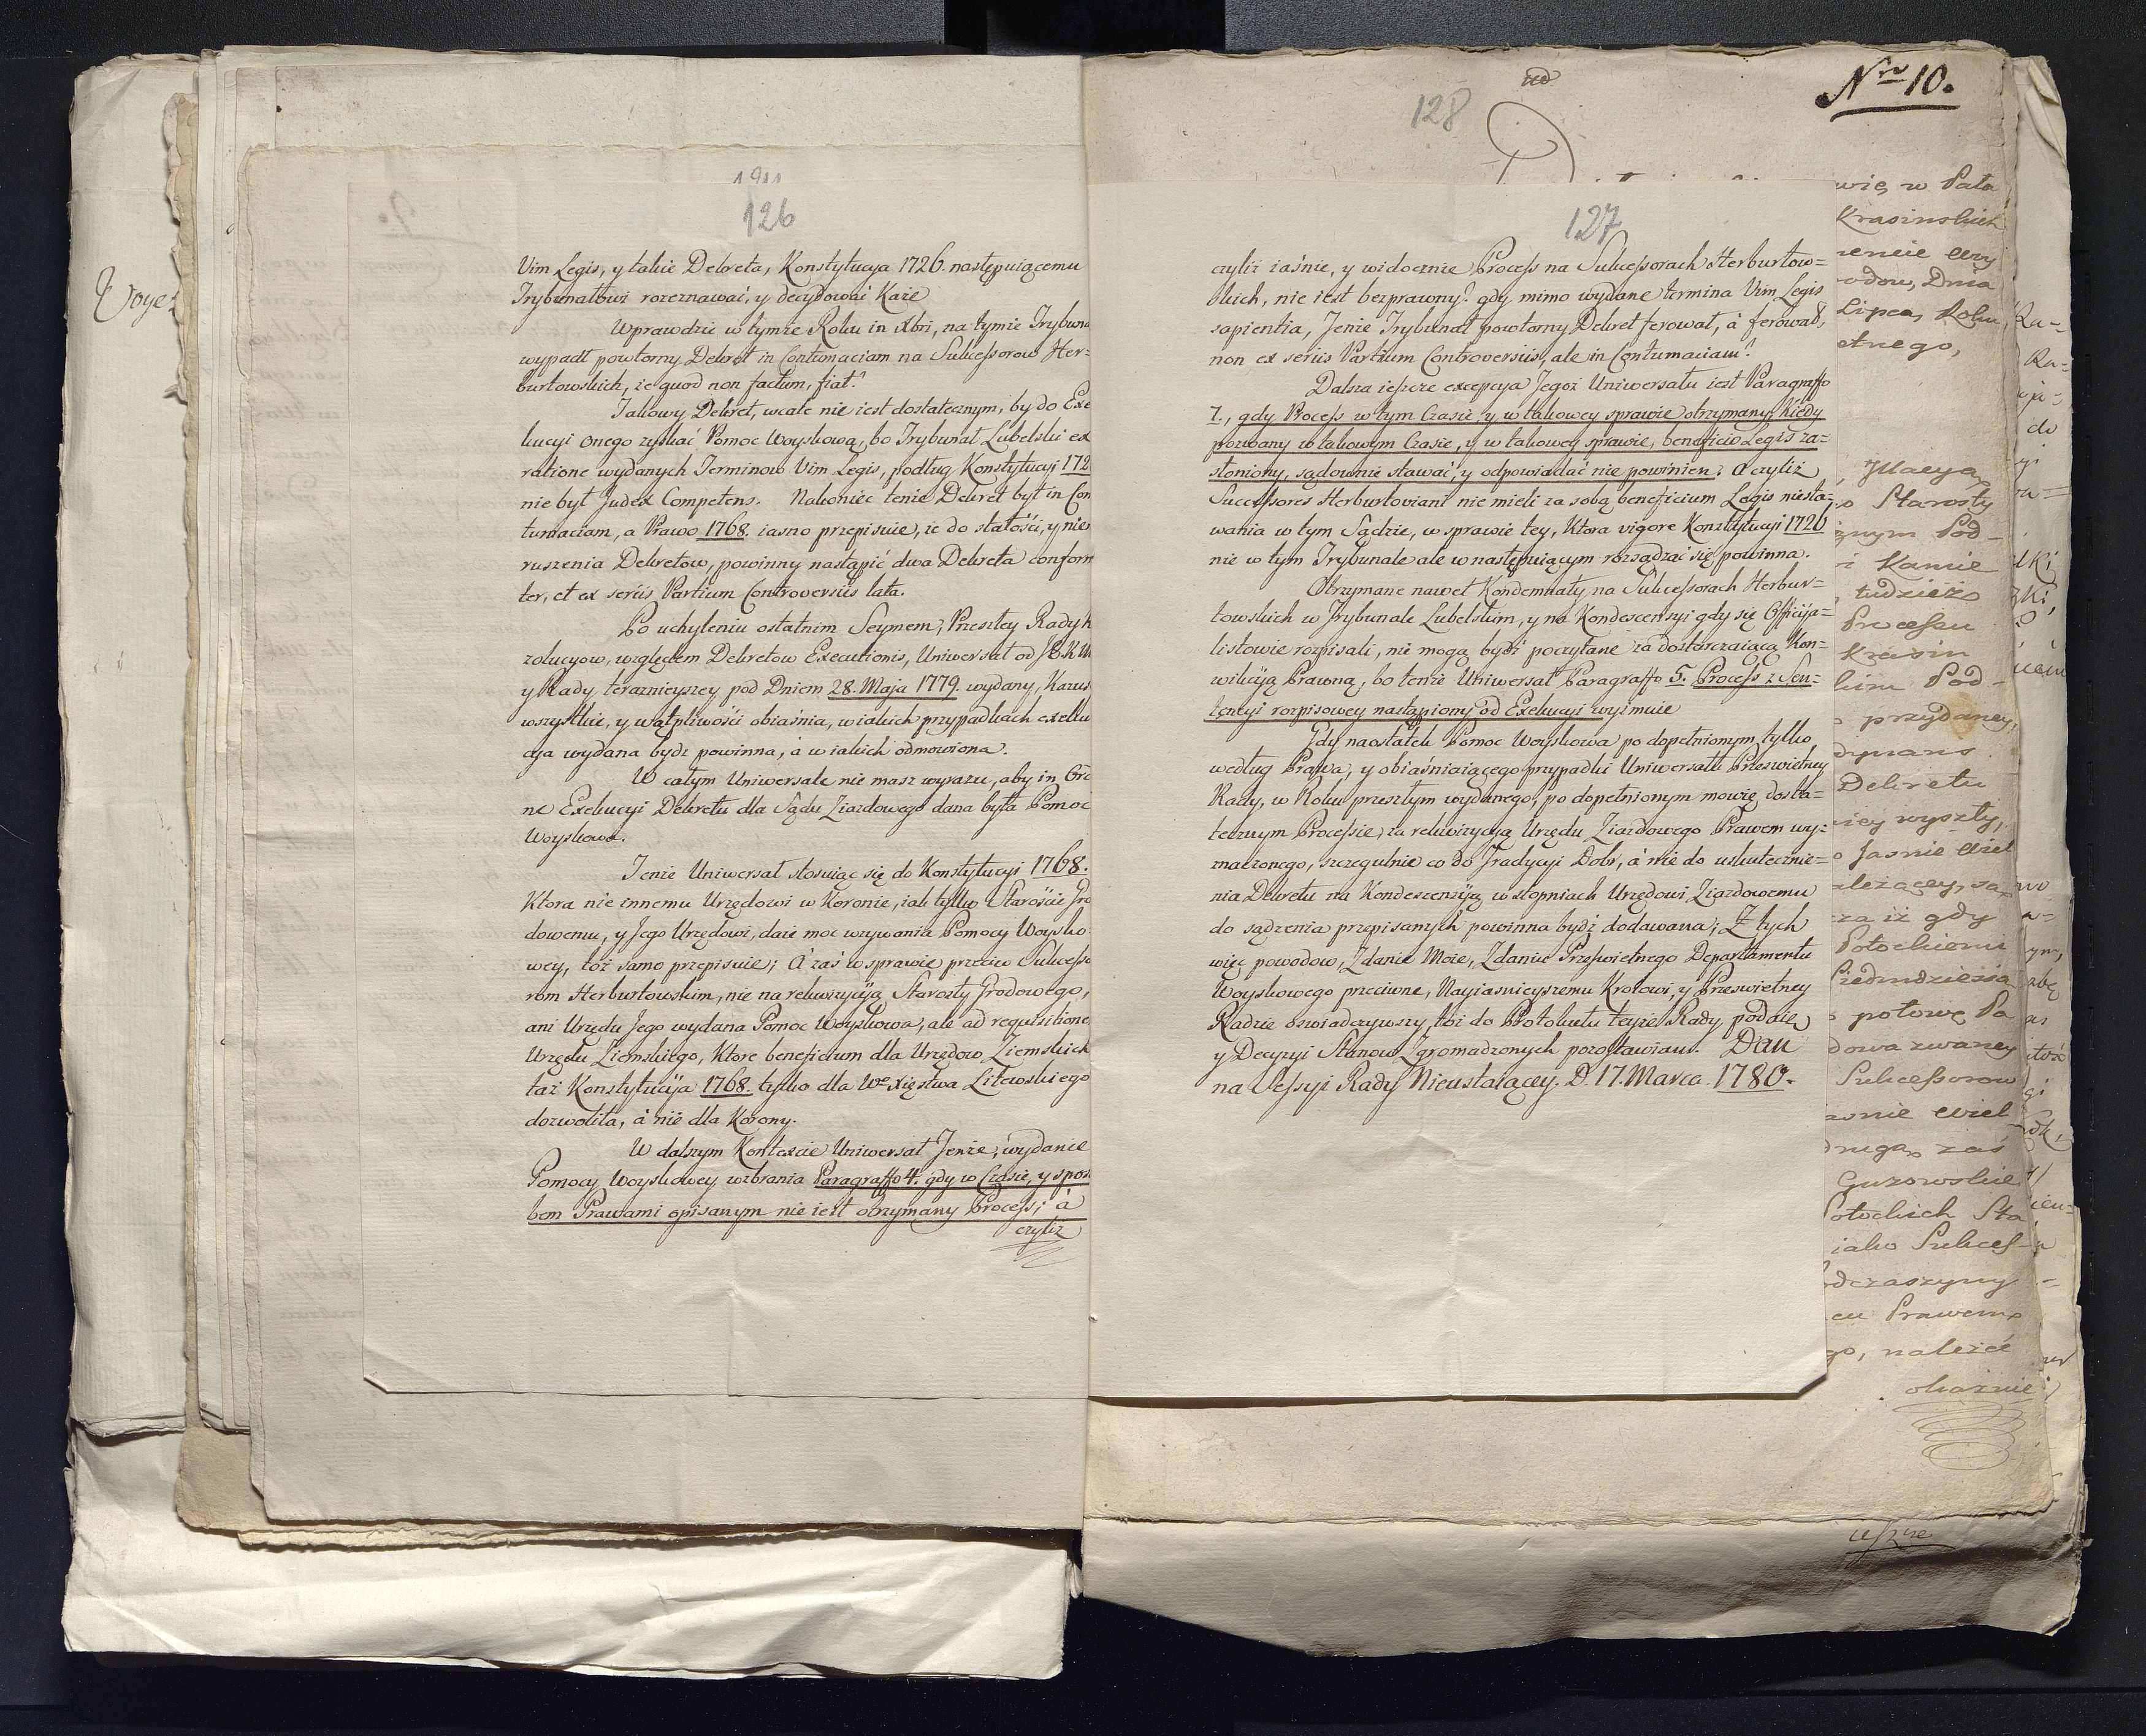 126
Vim Legis, y takie Dekreta, Konstytucya 1726. następuiącemu
Trybunałowi rozeznawać, y decydować Każe
Wprawdzie w tymże Roku in Xbri, na tymże Trybuna
wypadł powtorny Dekret in Contumaciam na Sukcessorow Her=
burtowskich, że quod non factum, fiat.
Takowy Dekret, wcale nie iest dostatecznym, by do Exe
kucyi onego zyskać Pomoc Woyskową, bo Trybunał Lubelski ex
ratione wydanych Terminow Vim Legis, podług Konstytucyi 172
nie był Judex Competens. Nakoniec tenże Dekret był in Con
tumaciam, a Prawo 1768. iasno przepisuie, że do stałości, y nie
ruszenia Dekretow, powinny nastąpić dwa Dekreta conform
ter, et ex seriis Partium Controversiis lata.
Po uchyleniu ostatnim Seymem, Przeszłey Rady
zolucyow, względem Dekretow Executionis, Uniwersał od J K
y Rady teraznieyszey pod Dniem 28. Maja 1779. wydany,
wszystkie, y wątpliwości obiaśnia, w iakich przypadkach exeku
cya wydana bydź powinna, à w iakich odmowiona.
W całym Uniwersale nie masz wyrazu, aby in Ord
ne Exekucyi Dekretu dla Sądu Ziazdowego dana była Pomoc
Woyskowa.
Tenże Uniwersał stosuiąc się do Konstytucyi 1768.
Ktora nie innemu Urzędowi w Koronie, iak tylko Staroście Gro
dowemu, y Jego Urzędowi, daie moc wzywania Pomocy Woysko
wey, toż samo przepisuie; A zaś w sprawie przeciw Sukcesso
rom Herburtowskim, nie na rekwizycyją Starosty Grodowego,
ani Urzędu Jego wydana Pomoc Woyskowa, ale ad requisitione
Urzędu Ziemskiego, Ktore beneficium dla Urzędow Ziemskich
taż Konstytucyja 1768. tylko dla We. xięstwa Litewskiego
dozwoliła, à nie dla Korony.
W dalszym Kontexcie Uniwersał Tenże, wydanie
Pomocy Woyskowey wzbrania Paragraffo 4. gdy w Czasie, y spos
bem Prawami opisanym nie iest otrzymany Process; à
czyliż
127
czyliż iaśnie, y widocznie Process na Sukcessorach Herburtow=
skich, nie iest bezprawny? gdy mimo wydane termina Vim Legis
sapientia, Tenże Trybunał powtorny Dekret ferował, à ferował,
non ex seriis Partium Controversiis, ale in Contumaciam?
Dalsza ieszcze excepcya Tegoż Uniwersału iest Paragraffo
7., gdy Process w tym Czasie, y w takowey sprawie otrzymany, Kiedy
pozwany w takowym Czasie, y w takowey sprawie, beneficio Legis za=
słoniony, sądownie stawać, y odpowiadać nie powinien: A czyliż
Successores Herburtoviani nie mieli za sobą beneficium Legis niesta=
wania w tym Sądzie, w sprawie tey, Ktora vigore Konstytucyi 1726
nie w tym Trybunale ale w następuiącym rozsądzać się powinna.
Otrzymane nawet Kondemnaty na Sukcessorach Herbur=
towskich w Trybunale Lubelskim, y na Kondescensyi gdy się Officija=
listowie rozpisali, nie mogą bydź poczytane za dostarczaiącą Kon=
wikcyją Prawną, bo tenże Uniwersał Paragraffo 5. Process z Sen=
tencyi rozpisowey nastąpiony od Exekucyi wyimuie
Gdy naostatek Pomoc Woyskowa po dopełnionym tylko
według Prawa, y obiaśniaiącego przypadki Uniwersału Prześwietney
Rady, w Roku przeszłym wydanego, po dopełnionym mowię dosta=
tecznym Processie, za rekwizycyją Urzędu Ziazdowego Prawem wy=
znaczonego, szczegulnie co do Tradycyi Dobr, à nie do uskutecznie=
nia Dekretu na Kondescensyją w stopniach Urzędowi Ziazdowemu
do sądzenia przepisanych powinna bydź dodawana; Z tych
więc powodow, Zdanie Moie, Zdaniu Prześwietnego Departamentu
Woyskowego przeciwne, Nayiaśnieyszemu Krolowi, y Prześwietney
Radzie oświadczywszy, toż do Protokułu teyże Rady podaię
y Decyzyi Stanow Zgromadzonych pozostawiam. Dan
na Sessyi Rady Nieustaiącey. D. 17. Marca. 1780.
128
Nro 10.
w Pała
Krasinskich
Dnia
Lipca, Roku
Starosty
Pod=
Kamie
tudzież
Processu
Krasin
Pod=
przydaney,
Dekretu
wyszły,
Jaśnie Wiel
iż gdy
Potockiemi
połowę Pa
zwaney
Sukcessorow
Wiel
drugą zaś
Guzowskie
Potockich Sta
iako Sukces=
Prawem
należeć
okaźnie